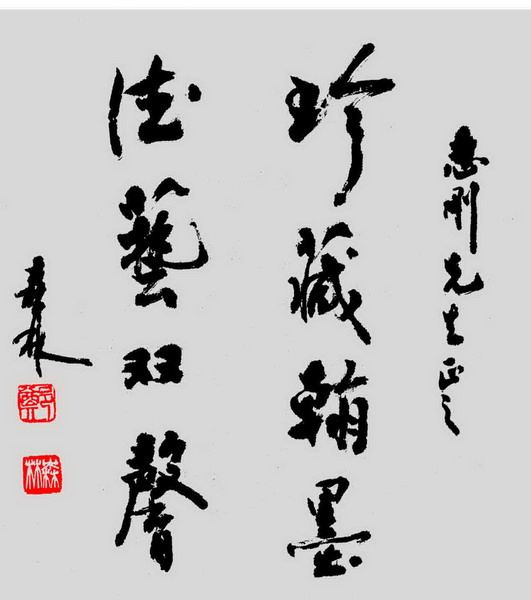 刚先生正之
珍藏翰墨
德藝双馨
林